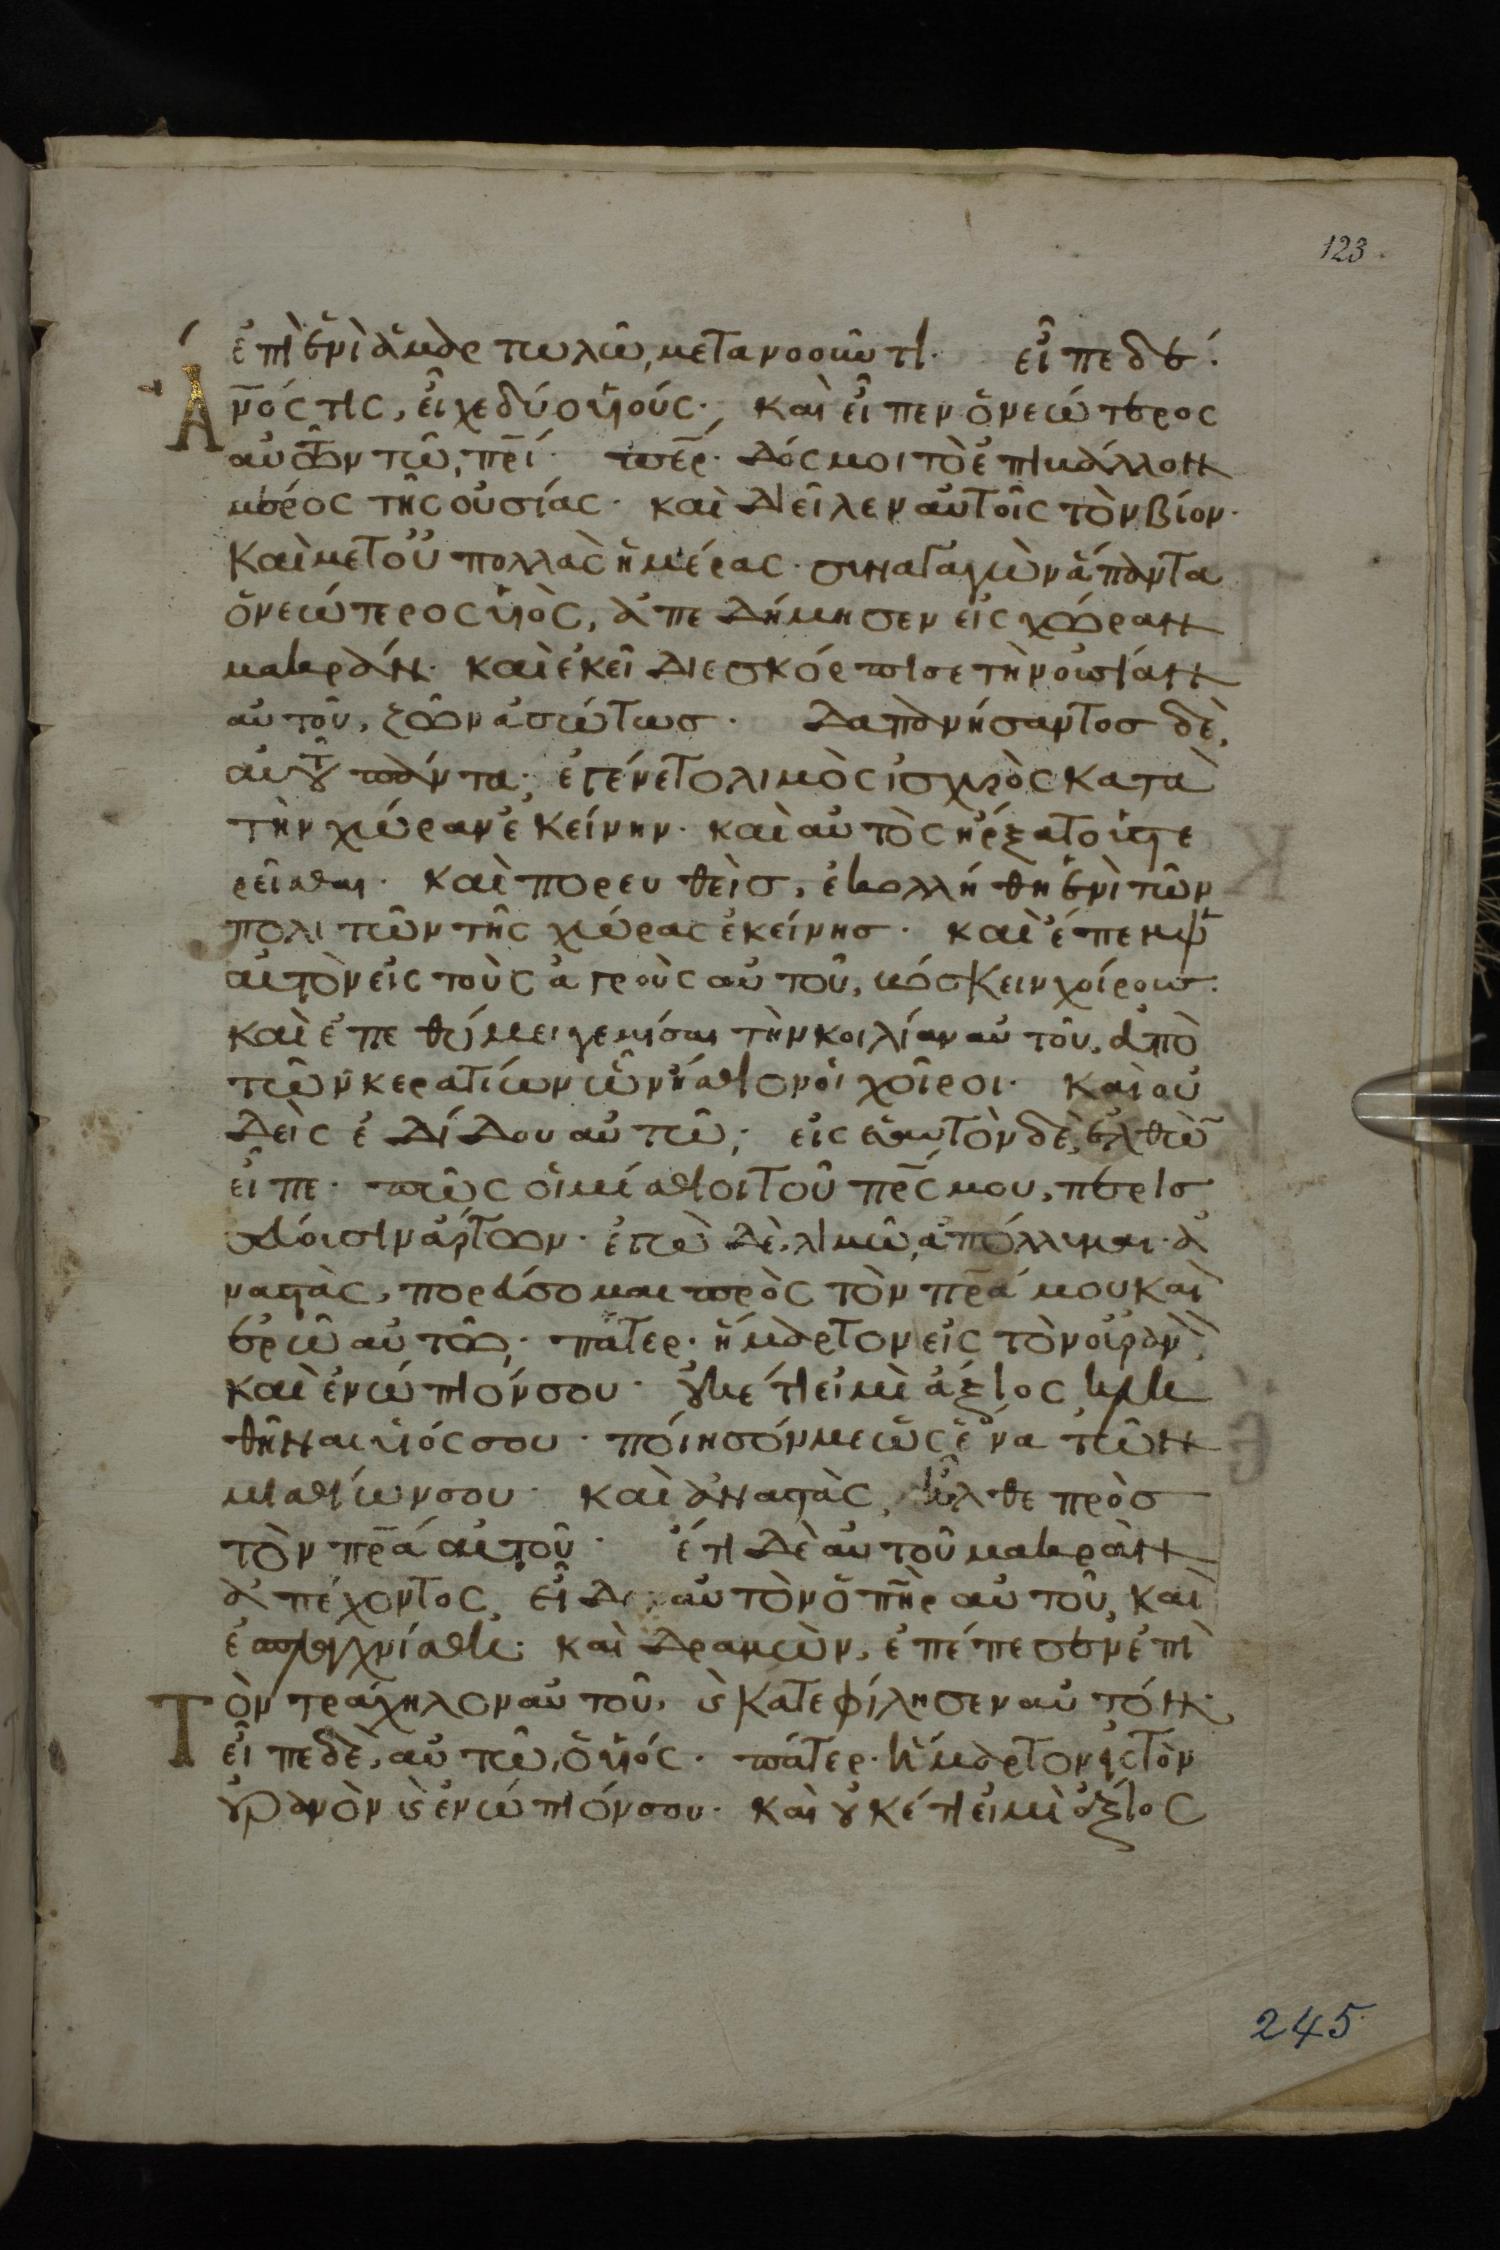 123
ἐπὶ ἑνὶ ἁμαρτωλῶ, μετανοοῦντι· εἶπε δέ·
Ἄνο̅ς τις, εἶχε δύο υἱούς· καὶ εἶπεν ὁ νεώτερος
αὐτῶν τῶ πρ̅ί· πε̅ρ· δός μοι τὸ ἐπιβάλλον
μέρος τῆς οὐσίας· καὶ διεῖλεν αὐτοῖς τὸν βίον·
καὶ μετ' οὐ πολλὰς ἡμέρας· συναγαγὼν ἅπαντα
ὁ νεώτερος υἱὸς, ἀπεδήμησεν εἰς χώραν
μακράν· καὶ ἐκεῖ διεσκόρπισε τὴν οὐσίαν
αὐτοῦ, ζῶν ἀσώτως· δαπανήσαντος δὲ,
αὐτοῦ πάντα· ἐγένετο λιμὸς ἰσχυρὸς κατὰ
τὴν χώραν ἐκείνην· καὶ αὐτὸς ἤρξατο ὑστε
ρεῖσθαι· καὶ πορευθεὶς, ἐκολλήθη ἑνὶ τῶν
πολιτῶν τῆς χώρας ἐκείνης· καὶ ἔπεμψ
αὐτὸν εἰς τοὺς ἀγροὺς αὐτοῦ, βόσκειν χοίρους·
καὶ ἐπεθύμει γεμίσαι τὴν κοιλίαν αὐτοῦ, ἀπὸ
τῶν κερατίων ὧν ἤσθιον οἱ χοῖροι· καὶ οὐ
δεὶς ἐδίδου αὐτῶ· εἰς ἑαυτὸν δὲ, ἐλθὼ̅
εἶπε· πῶς οἱ μίσθιοι τοῦ πρ̅ς μου, περισ
σεύουσιν ἄρτων· ἐγὼ δὲ, λιμῶ, ἀπόλλυμαι· ἀ
ναστὰς, πορεύσομαι πρὸς τὸν πρ̅α μου καὶ
ἐρῶ αὐτῶ· πάτερ· ἥμαρτον εἰς τὸν οὐρανὸν
καὶ ἐνώπιόν σου· οὐκέτι εἰμὶ ἄξιος κλη
θῆναι υἱός σου· ποίησόν με ὡς ἕνα τῶν
μισθίων σου· καὶ ἀναστὰς, ἦλθε πρὸς
τὸν πρ̅α αὐτοῦ· ἔτι δὲ αὐτοῦ μακρὰν
ἀπέχοντος, εἶδεν αὐτὸν ὁ πη̅ρ αὐτοῦ, καὶ
ἐσπλαγχνίσθη· καὶ δραμὼν, ἐπέπεσεν ἐπὶ
Τὸν τράχηλον αὐτοῦ, ϗ κατεφίλησεν αὐτόν·
εἶπε δὲ, αὐτῶ, ὁ υἱός· πάτερ· ἥμαρτον εἰς τὸν
οὐρανὸν ϗ ἐνώπιόν σου· καὶ οὐκέτι εἰμὶ ἄξιος
245